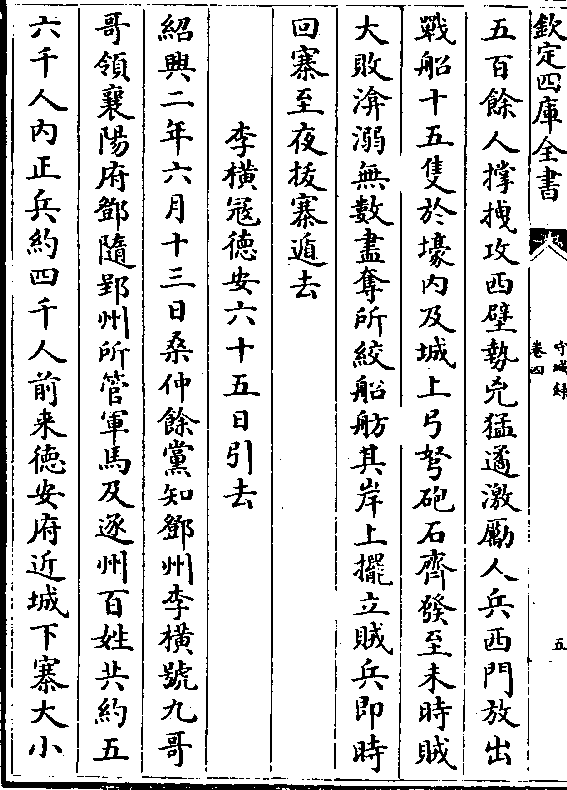 欽定四庫全書
守城錄
卷四
五
五百餘人撑拽攻西壁勢兇猛遂激勵人兵西門放出
戰船十五隻於壕内及城上弓弩砲石齊發至未時賊
大敗渰溺無數盡奪所絞船舫其岸上擺立賊兵即時
回寨至夜拔寨遁去
李橫冦德安六十五日引去
紹興二年六月十三日桑仲餘黨知鄧州李橫號九哥
哥領襄陽府鄧隨郢州所管軍馬及逐州百姓共約五
六千人内正兵約四千人前来德安府近城下寨大小